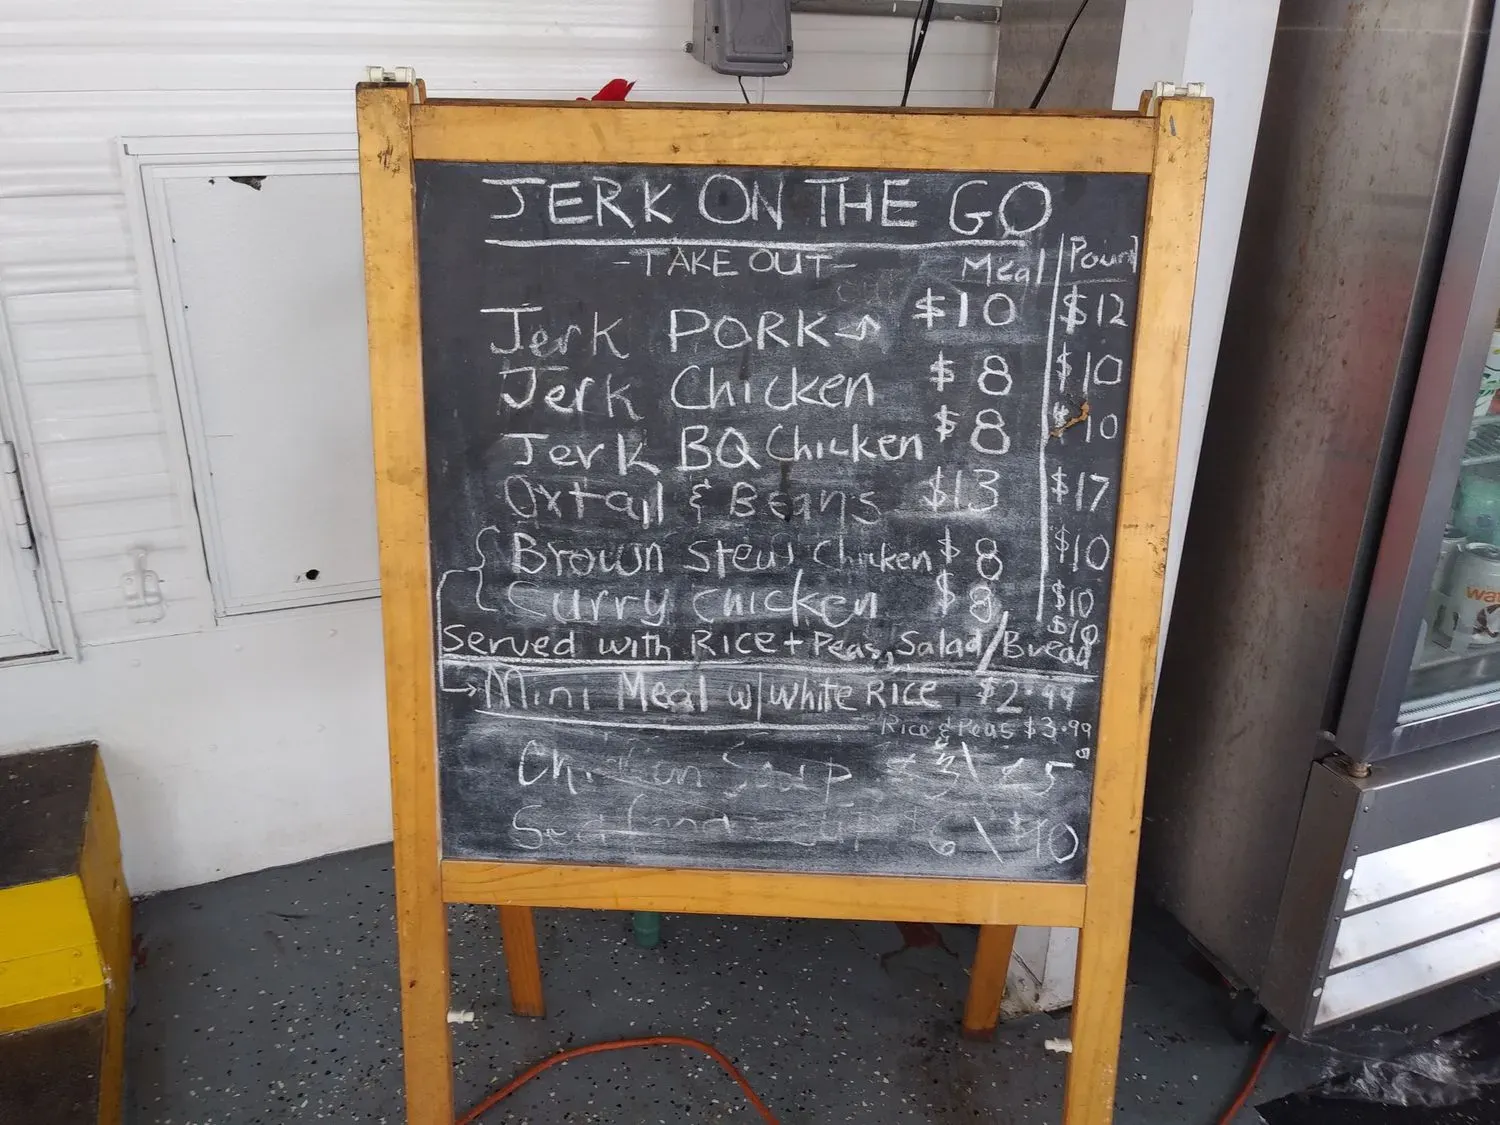 JERK ON THE GO
-TAKE OUT- Meal Pound
Jerk PORK → $10 $12
Jerk Chicken $8 $10
Jerk BQ Chicken $8 $10
Oxtail & Beans $13 $17
Brown Stew Chicken $8 $10
Curry Chicken $8 $10
$10
Served with Rice + Peas, Salad/Bread
→ Mini Meal w/white Rice $2.99
Rice & Peas $3.99
Chicken Soup $3\ $5
Seafood $6\ $10